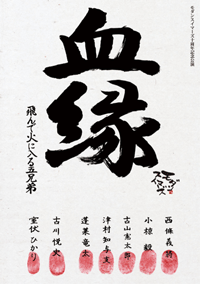 モダンスイマーズ十周年記念公演
血縁
飛んで火に入る五兄弟
モダンスイマーズ
西條義将
小椋毅
古山憲太郎
津村知与支
蓬莱竜太
古川悦史
室伏ひかり